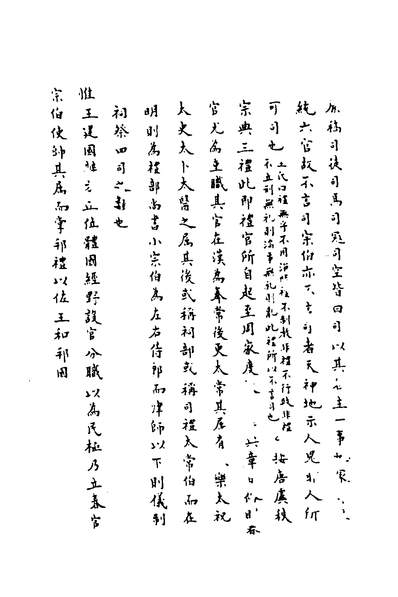 原稿司徒司馬司寇司空皆曰司以其各主一事也冢
統六官故不言司宗伯亦不言司者天神地示人鬼非人所
可司也王氏曰禮無乎不同
不立刑無禮刑 禮不行政非禮
此禮所以不言司也按唐虞秩
宗典三禮此即禮官所自起至周家 春
官尤為重職其官在漢為奉常後更太常其屬有 樂太祝
太史太卜太醫之屬其後或稱祠部或稱司禮太常伯而在
明則為禮部尚書小宗伯為左右侍郎而肆師以下則儀制
祠祭四司之類也
惟王建國辨方正位體國經野設官分職以為民極乃立春官
宗伯使帥其屬而掌邦禮以佐王和邦國